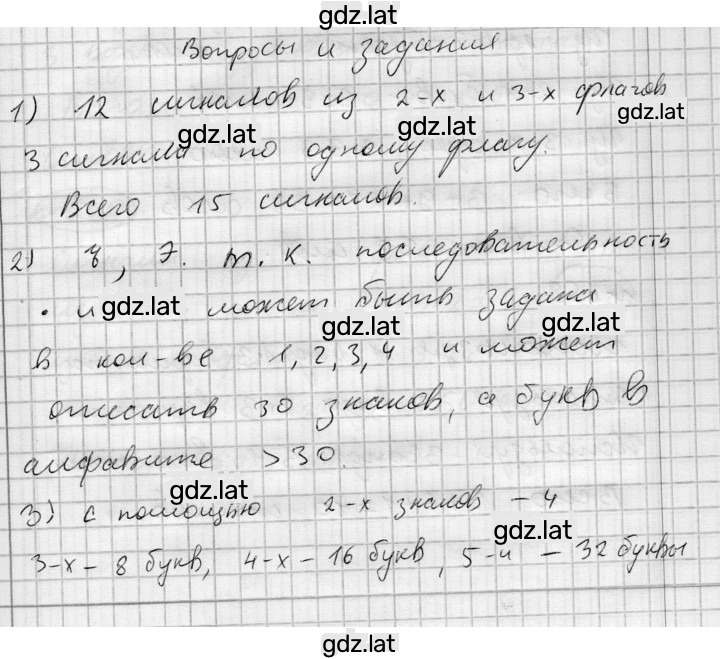 gdz.lat
Вопросы и задания
1) 12 сигналов из 2-х и 3-х флагов
gdz.lat
gdz.lat gdz.lat
3 сигнала по одному флагу.
Всего 15 сигналов.
2) Э. т.к. последовательность
• и gdz.lat может быть задана
gdz.lat gdz.lat
в кол-ве 1, 2, 3, 4 и может
описать 30 знаков, а букв в
алфавите >30.
gdz.lat
3) с помощью 2-х знаков - 4
gdz.lat
3-х - 8 букв, 4-х - 16 букв, 5-и - 32 буквы
gdz.lat